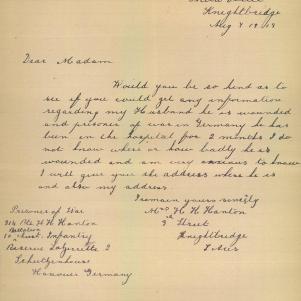 Third Street
Knightbridge
Aug 9 1918
Dear Madam
Would you be so kind as to
see if you could get any information
regarding my Husband he is wounded
and prisoner of war in Germany he has
been in the hospital for 2 months I do
not know where or how badly he is
wounded and am very anxious to know
I will give you the address where he is
and also my address.
I remain yours
Mrs H H Hanton
3rd Street
Knightbridge
Prisoner of War
Pte H H Hanton
Battalion
10 Aust. Infantry
Reserve Lazarette 2
Schutzenhaus
Hanover Germany